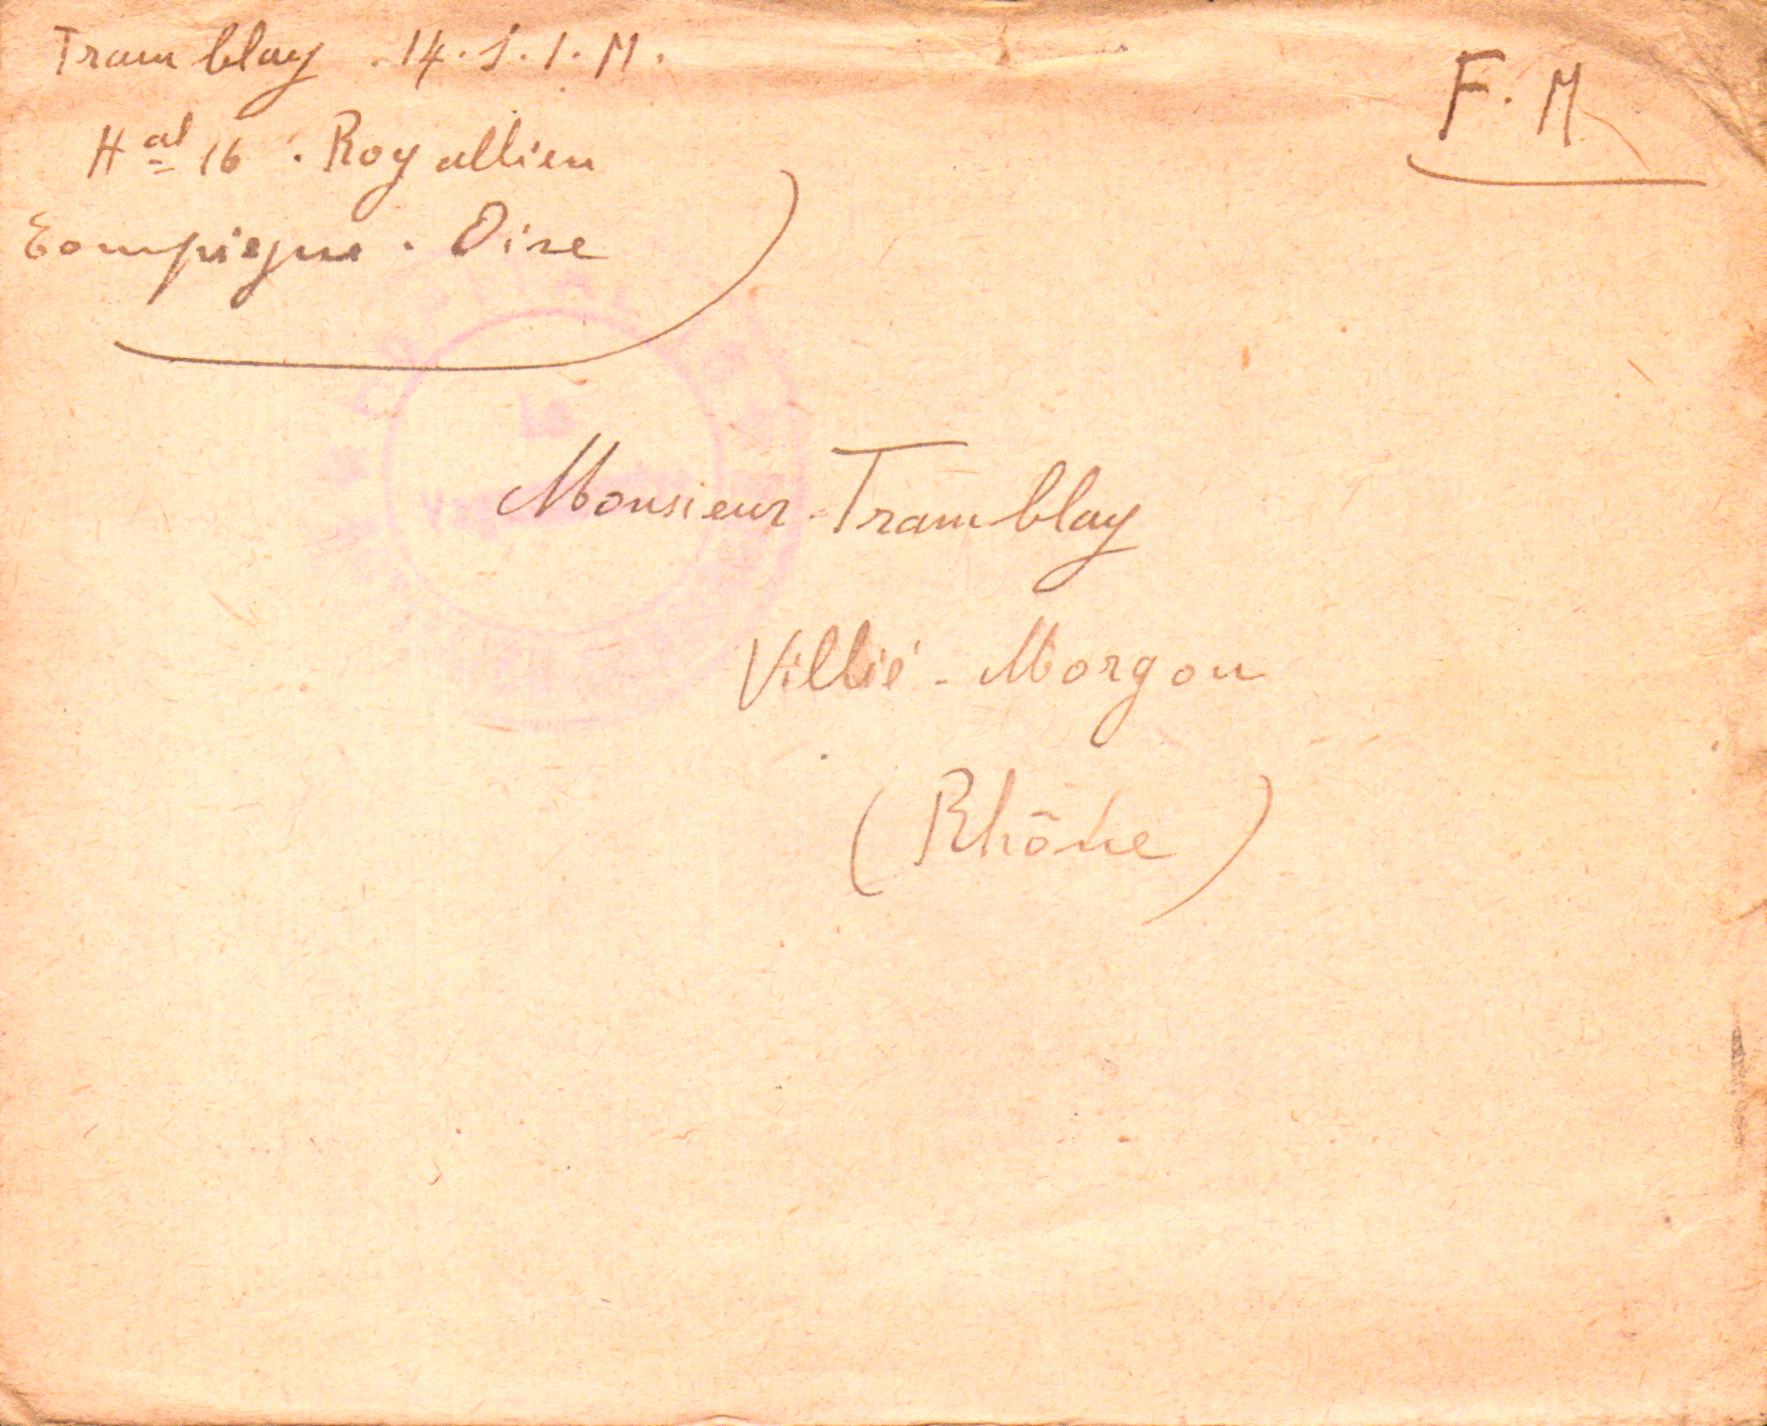 Tramblay . 14. S. I. M.
F. M
Hal 16 . Royallieu
Compiegne . Oise
HOPITAL
Le
Monsieur Tramblay
Villié - Morgon
(Rhône)